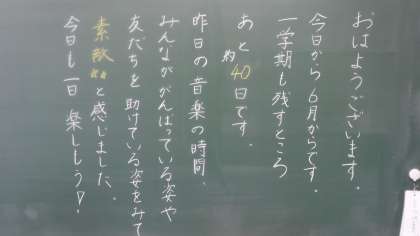 おはようございます。
今日から6月からです。
一学期も残すところ
あと約40日です。
昨日の音楽の時間、
みんながんばっている姿や
友だちを助けている姿をみて
素敵だなと感じました。
今日も一日楽しもう！